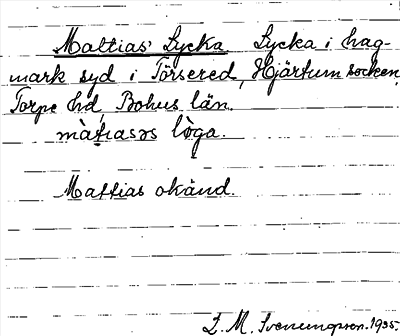 Mattias' Lycka Lycka i hag-
mark syd i Törsered, Hjärtum socken,
Torpe hd, Bohus län.
màtiasəs lø̀ga.
Mattias okänd.
L. M. Svenungsson. 1935.